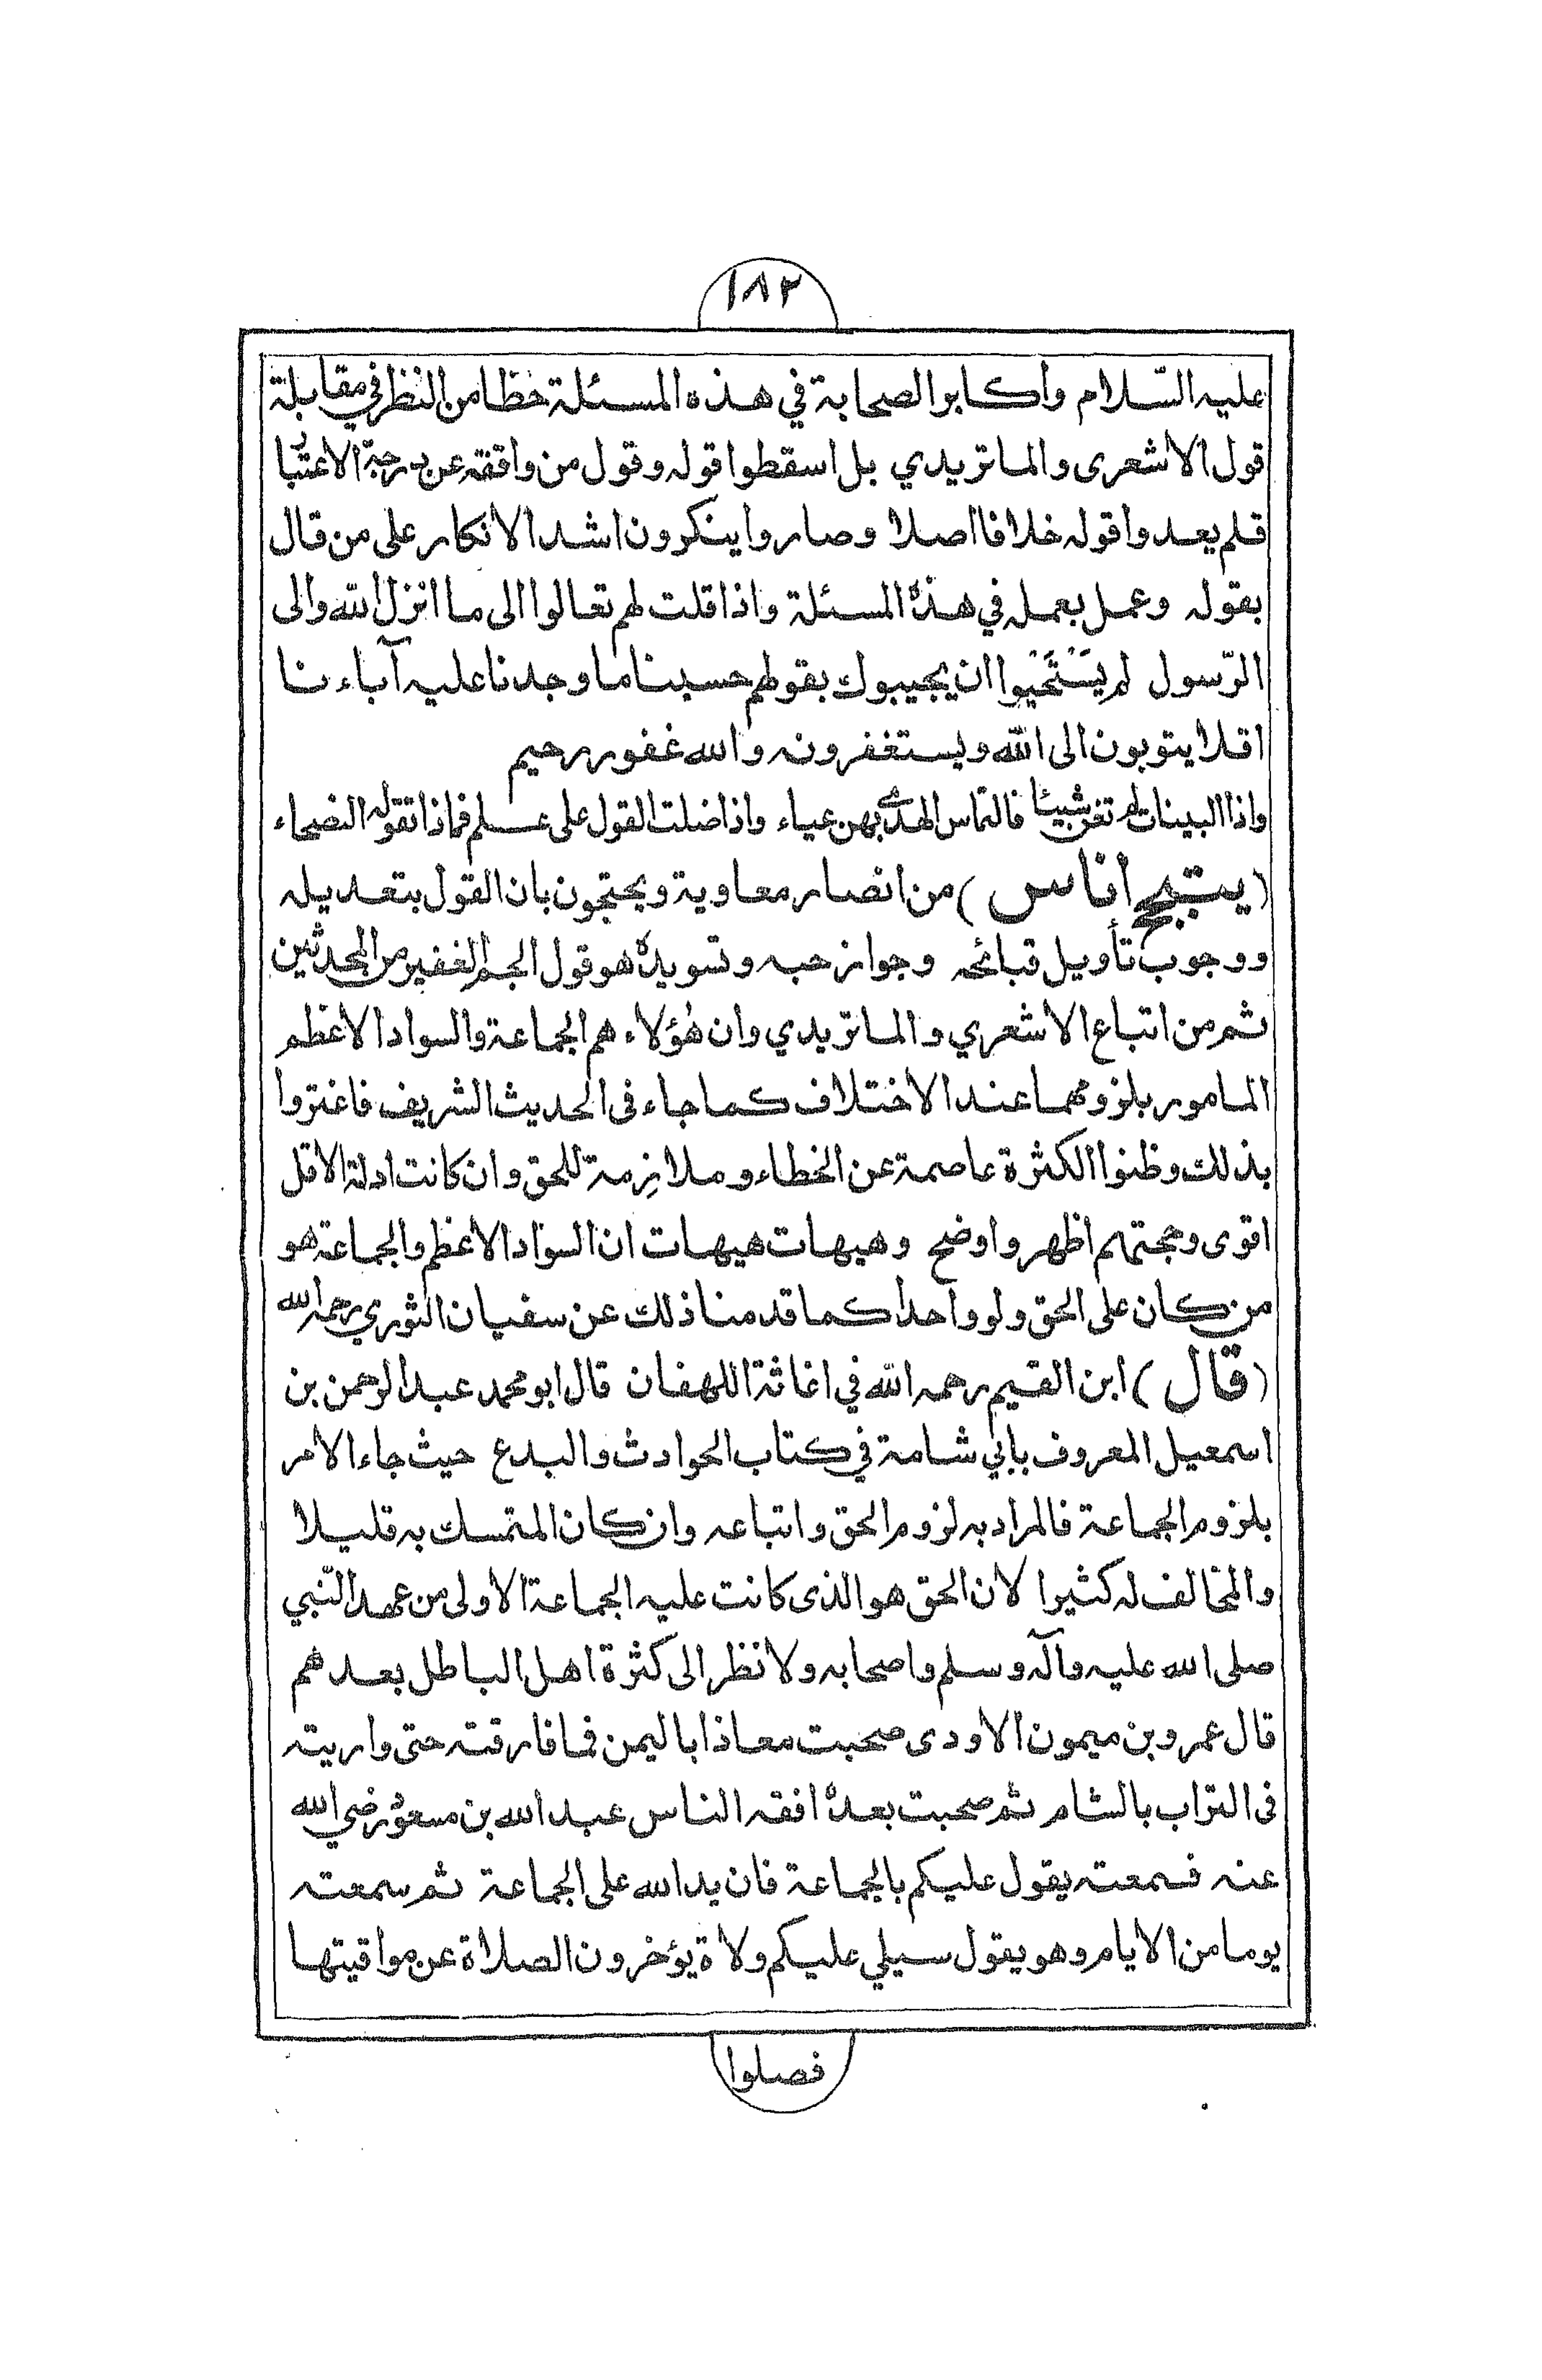 ١٨٢
عليه السّلام وأكابر الصحابة في هذه المسئلة حظا من النظر في مقابلة
قول الاشعرى والماتريدي بل اسقطوا قوله وقول من وافقه عن درجة الاعتبار
فلم يعدوا قوله خلافا اصلا وصاروا ينكرون اشد الانكار على من قال
بقوله وعمل بعمله في هذه المسئلة واذا قلت لهم تعالوا الى ما انزل الله والى
الرّسول لم يَسْتَحْيوا ان يجيبوك بقولهم حسبنا ما وجدنا عليه آباءنا
افلا يتوبون الى الله ويستغفرونه والله غفور رحيم
واذا البينات لم تغن شيئا فالتماس الهدى بهن عياء واذا ضلت القول على علم فماذا تقوله النصحاء
(يتبجح اناس) من انصار معاوية ويحتجون بان القول بتعديله
ووجوب تأويل قبائحه وجواز حبه وتسويده هو قول الجم الغفير من المحدثين
ثم من اتباع الاشعري والماتريدي وان هٰؤلاء هم الجماعة والسواد الاعظم
المامور بلزومهما عند الاختلاف كما جاء فى الحديث الشريف فاغتروا
بذلك وظنوا الكثرة عاصمة عن الخطاء وملازمة للحق وان كانت ادلة الاقل
اقوى وحجتهم اظهر واوضح وهيهات هيهات ان السواد الاعظم والجماعة هو
من كان على الحق ولو واحدا كما قدمنا ذلك عن سفيان الثوري رحمه الله
(قال) ابن القيم رحمه الله في اغاثة اللهفان قال ابو محمد عبد الرحمن بن
اسمعيل المعروف بابي شامة في كتاب الحوادث والبدع حيث جاء الامر
بلزوم الجماعة فالمراد به لزوم الحق واتباعه وان كان المتمسك به قليلا
والمخالف له كثيرا لان الحق هو الذى كانت عليه الجماعة الاولى من عهد النّبي
صلى الله عليه وآله وسلم واصحابه ولا نظر الى كثرة اهل الباطل بعدهم
قال عمرو بن ميمون الاودى صحبت معاذا باليمن فما فارقته حتى واريته
فى التراب بالشام ثم صحبت بعده افقه الناس عبد الله بن مسعود رضي الله
عنه فسمعته يقول عليكم بالجماعة فان يد الله على الجماعة ثم سمعته
يوما من الايام وهو يقول سيلي عليكم ولاة يؤخرون الصلاة عن مواقيتها
فصلوا